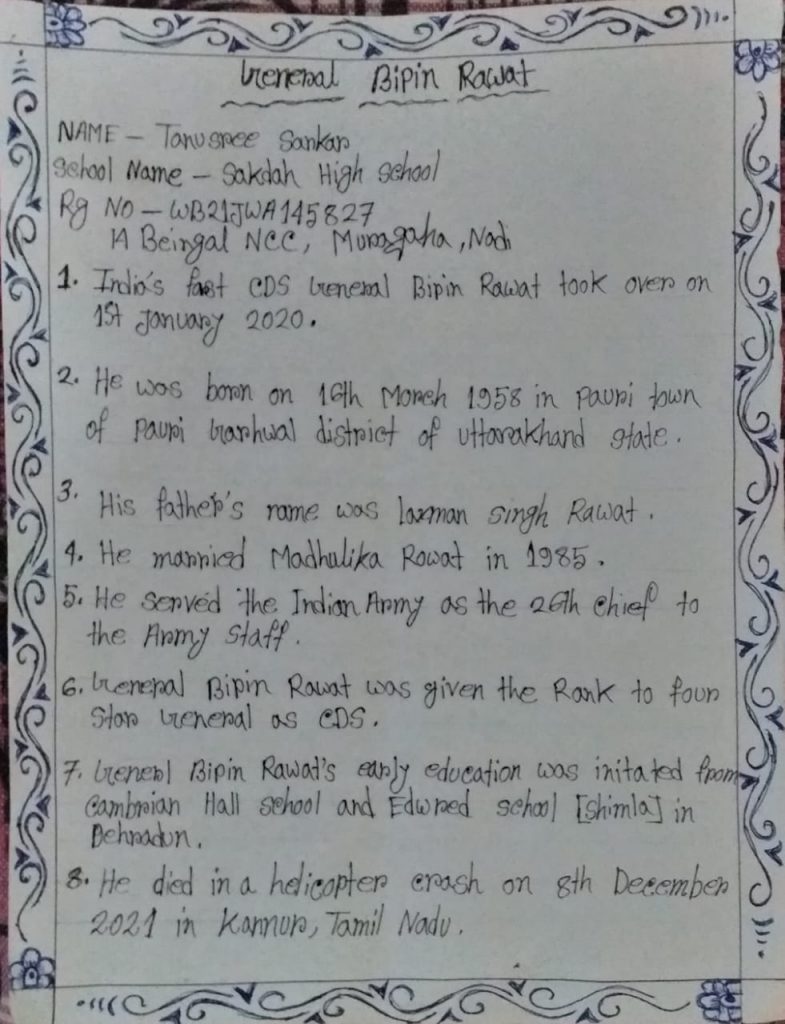 General Bipin Rawat
NAME - Tanusree Sarkar
School Name - Sakdah High School
Rg NO - WB21JWA145827
14 Beingal NCC, Muragaha, Nadi
1. India's fast CDS General Bipin Rawat took over on
1st January 2020.
2. He was born on 16th March 1958 in Pauri town
of Pauri Garhwal district of Uttarakhand state.
3. His father's name was laxman singh Rawat.
4. He marrried Madhulika Rawat in 1985.
5. He served the Indian Army as the 26th chief to
the Army staff.
6. General Bipin Rawat was given the Rank to four
Star General as CDS.
7. Generl Bipin Rawat's early education was initated from
Cambrian Hall school and Edwred school [shimla] in
Dehradun.
8. He died in a helicopter crash on 8th December
2021 in Kannur, Tamil Nadu.